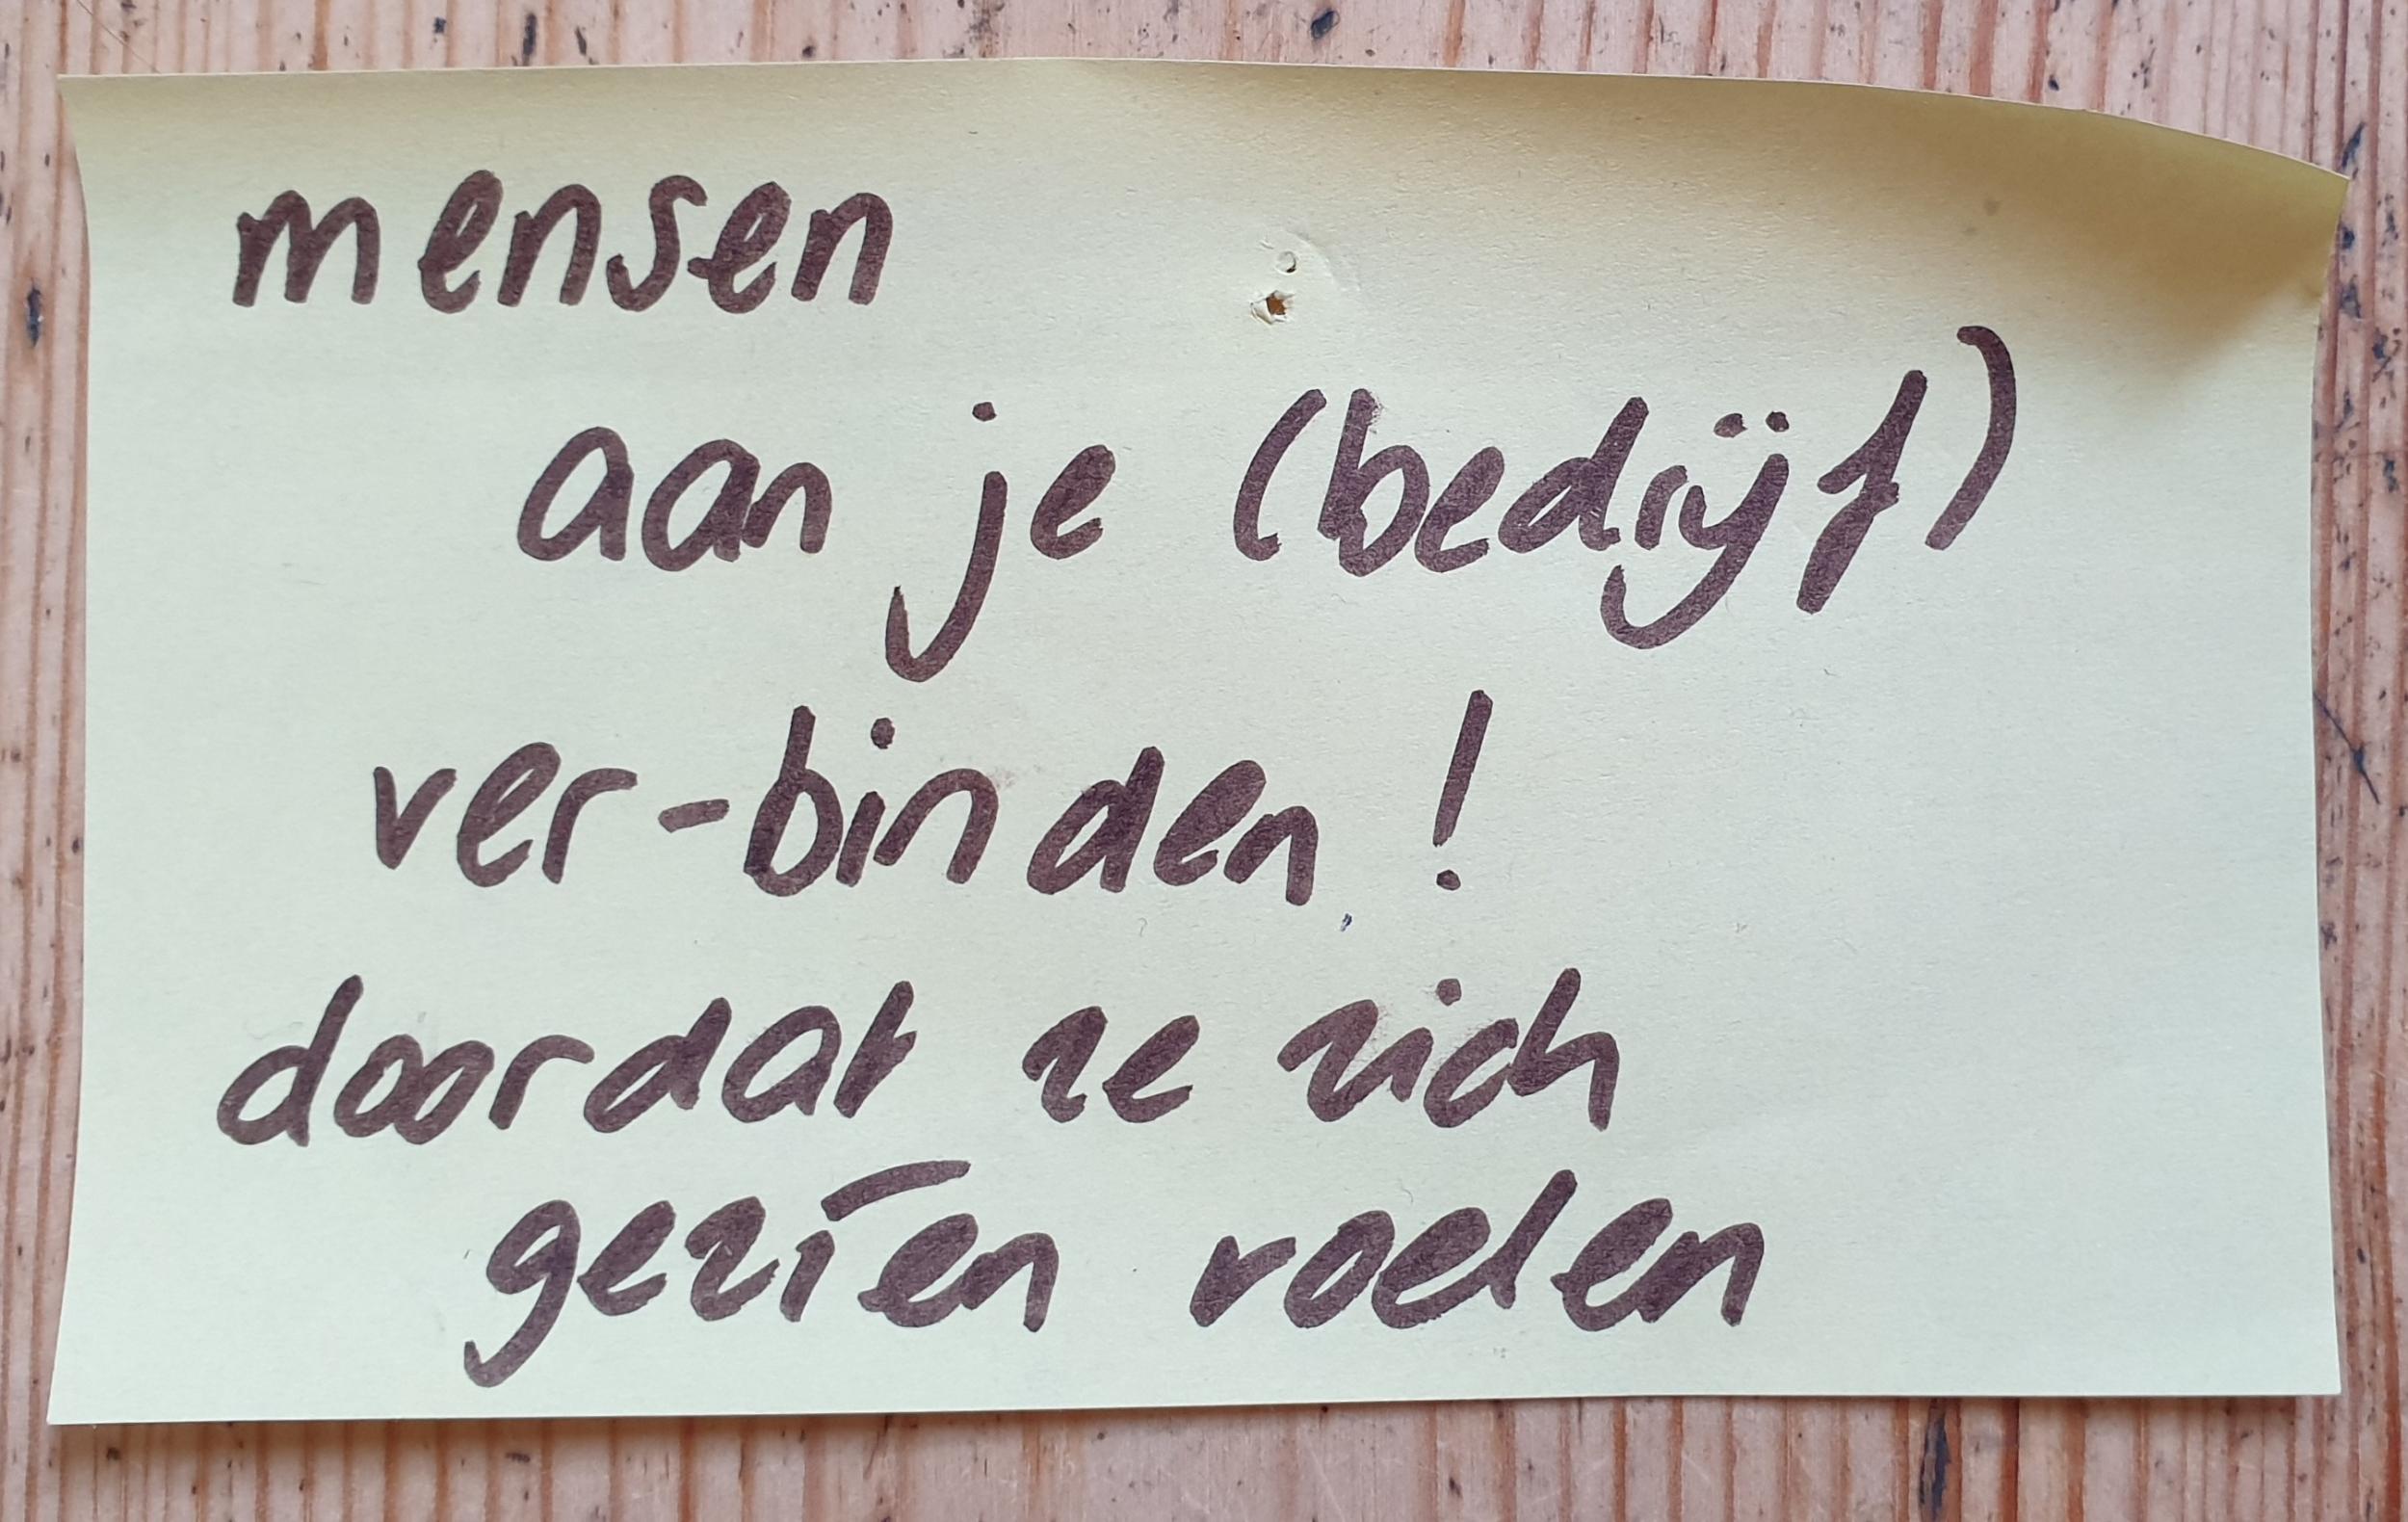 mensen
aan je (bedrijf)
ver-binden!
doordat ze zich
gezien voelen